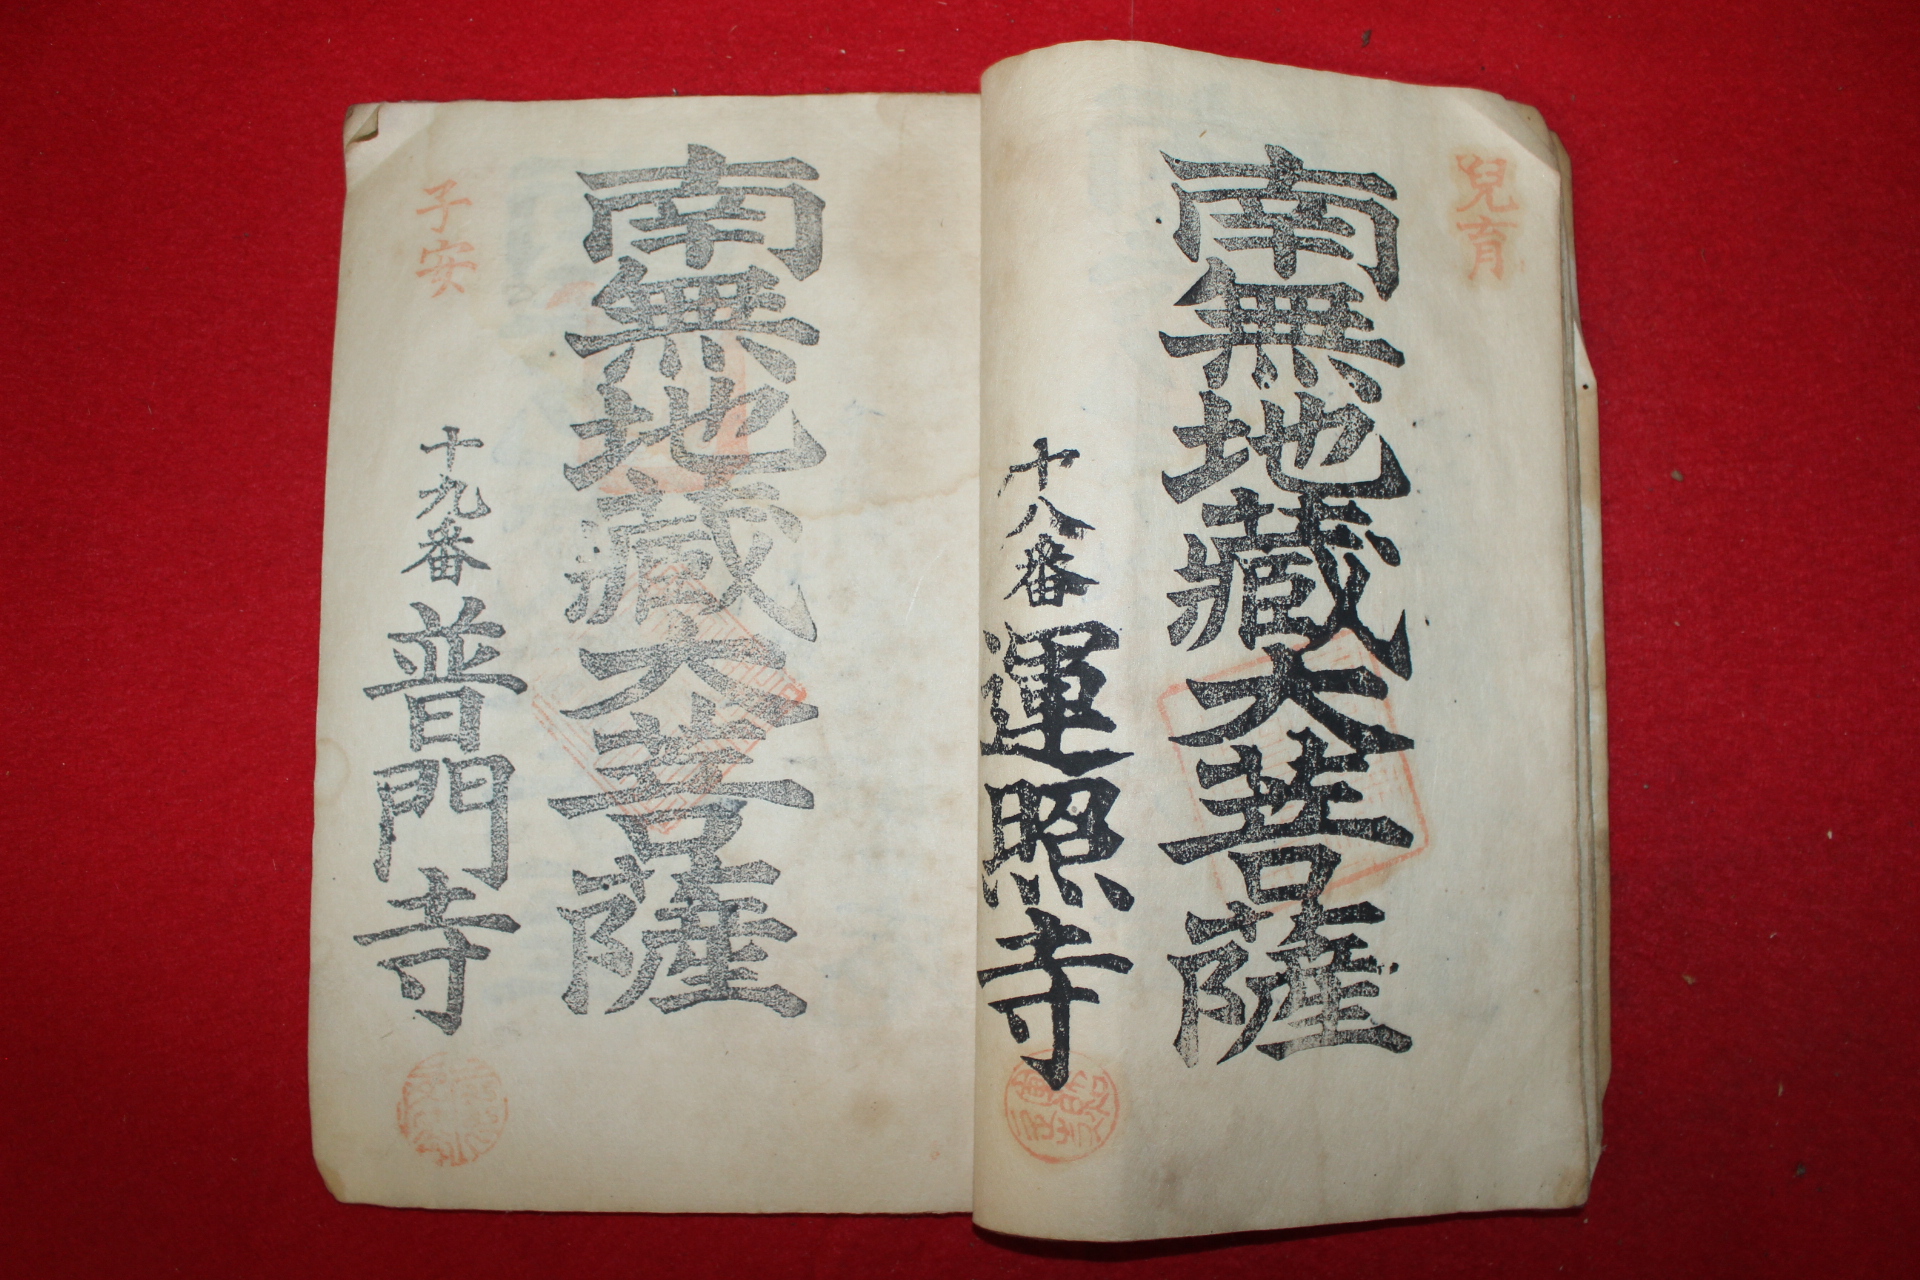 兒育
南無地藏大菩薩
十八番 運照寺
子安
南無地藏大菩薩
十九番 普門寺